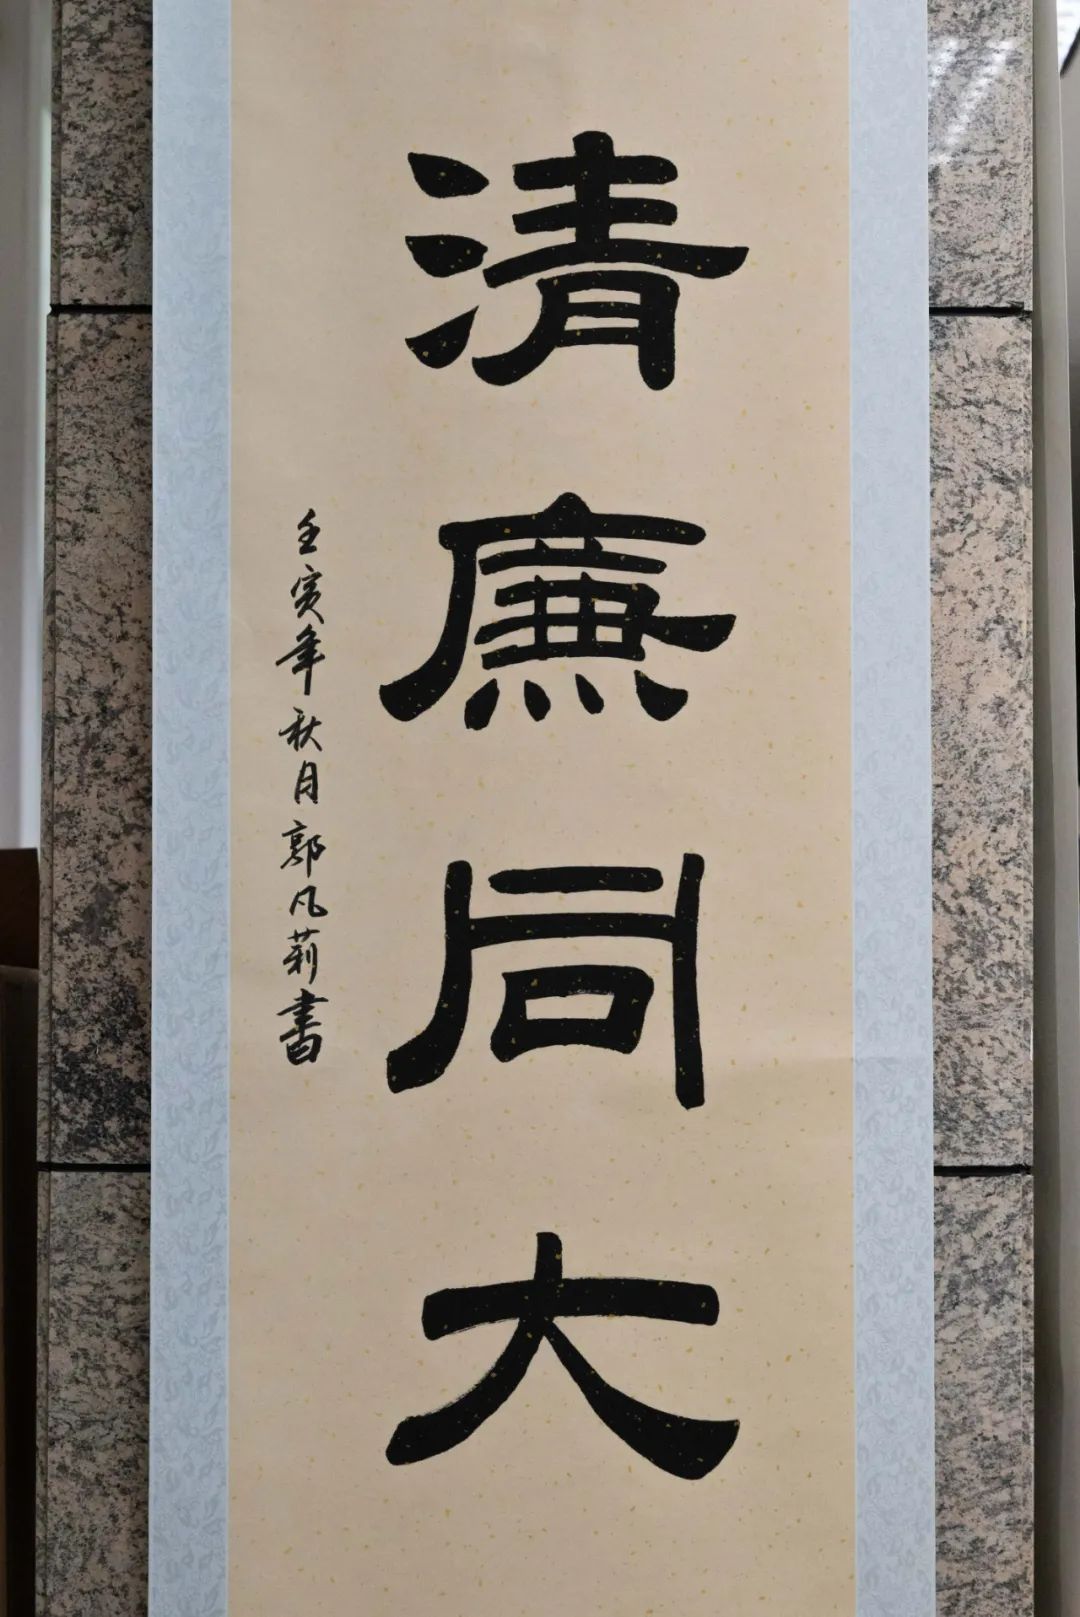 清廉同大
壬寅年秋月郭凡莉書